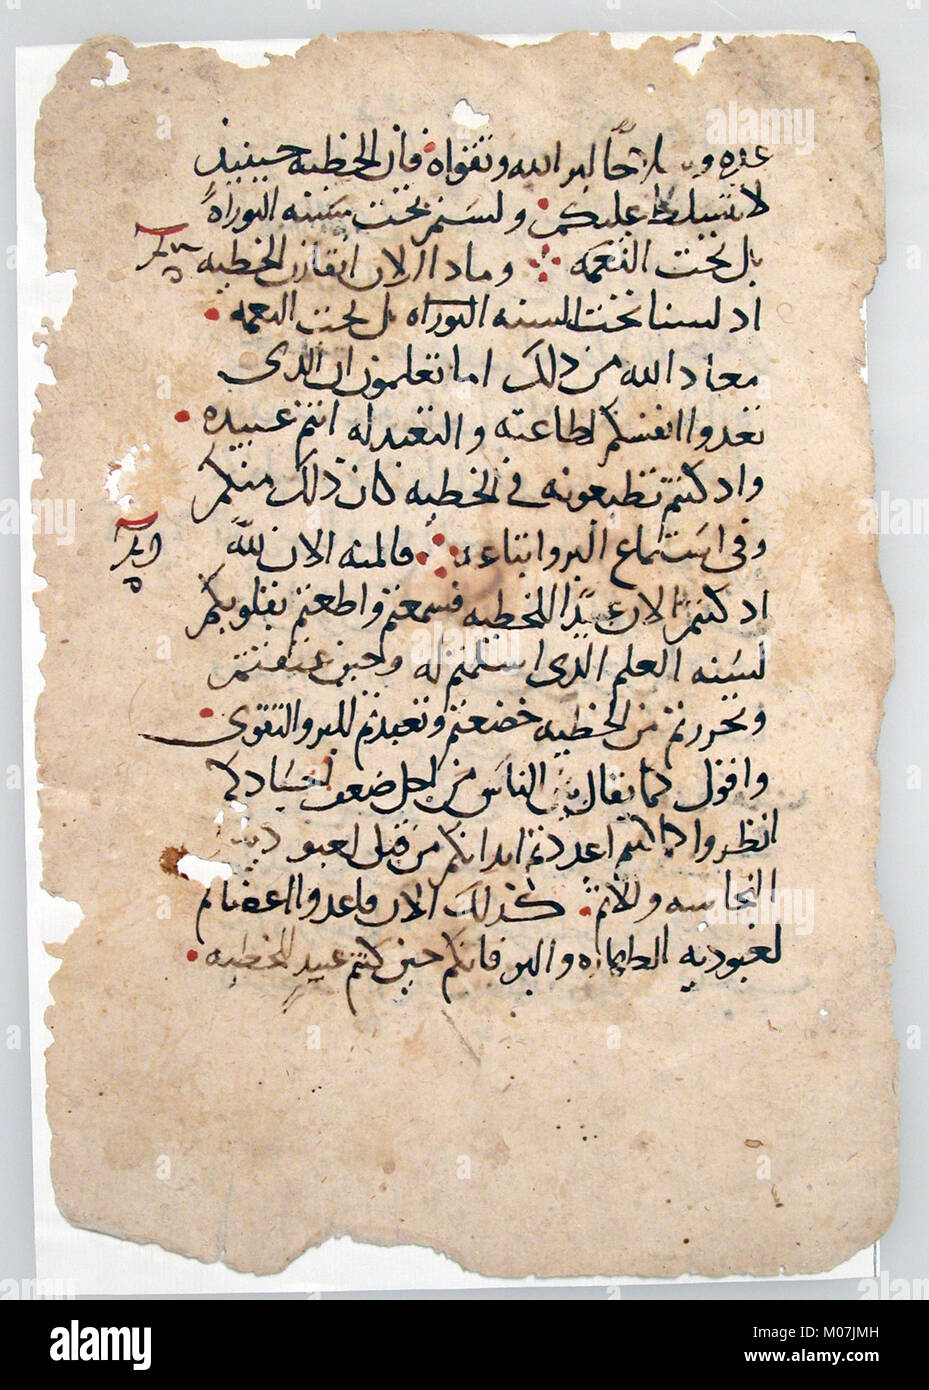 عده و سلاحا لبر الله وتقواه فان الخطيه حينيذ
لا تتسلط عليكم ولستم تحت سنه التوراه
بل تحت النعمه وماذا الان اتقارن الخطيه
اذ لسنا تحت السنه التوراه بل تحت النعمه
معاذ الله من ذلك اما تعلمون ان الذي
تعدوا انفسكم لطاعته والتعبد له انتم عبيده
واذ كنتم تطيعونه في الخطيه كان ذلك منكم
وفي استماع البر واتباعه فالمنه الان لله
اذ كنتم الان عبيدا للخطيه فسمعتم واطعتم بقلوبكم
لسنه العلم الذي اسلمتم له وحين عتقتم
وتحررتم من الخطيه خضعتم وتعبدتم للبر والتقوى
واقول كما يقال بين الناس من اجل ضعف اجسادكم
انظروا كما كنتم اعددتم ابدانكم من قبل لعبوديه
النجاسه وللاثم كذلك الان فاعدوا اعضاكم
لعبوديه الطهاره والبر فانكم حين كنتم عبيد الخطيه
alamy
M07JMH
Image ID: M07JMH
www.alamy.com